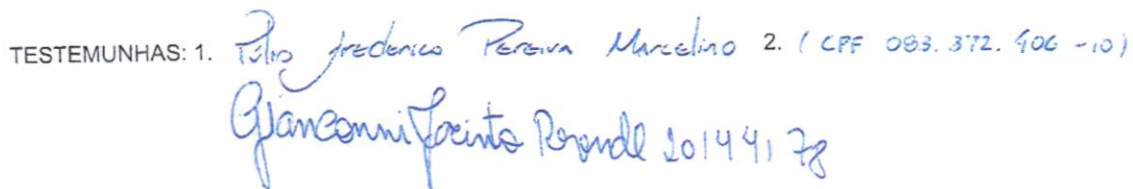 TESTEMUNHAS: 1. Túlio Frederico Pereira Marcelino 2. (CPF 083.372.406-10)
Gianconni Jacinto 20144178